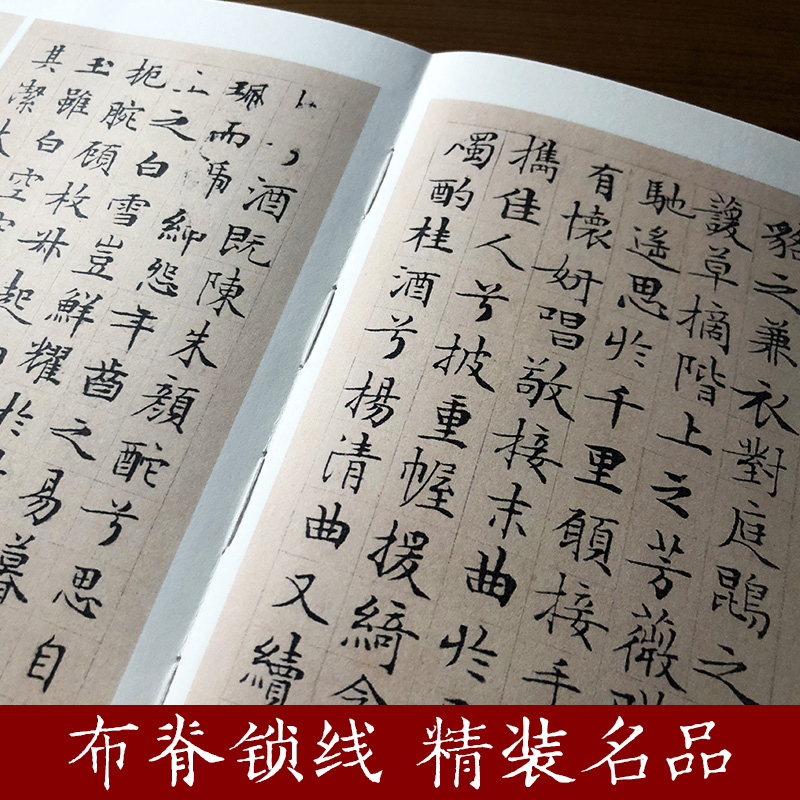 貉之兼衣對庭鵾之
蘐草摘階上之芳薇
馳遙思於千里願接手
有懷妍唱敬接末曲於
攜佳人兮披重幄援綺
燭酌桂酒兮揚清曲又續
酒既陳朱顏酡兮思自
珮而紳怨年之易暮
之白雪豈鮮耀於
扼腕顧枚叔起
玉雖白空
其潔
布脊锁线 精装名品